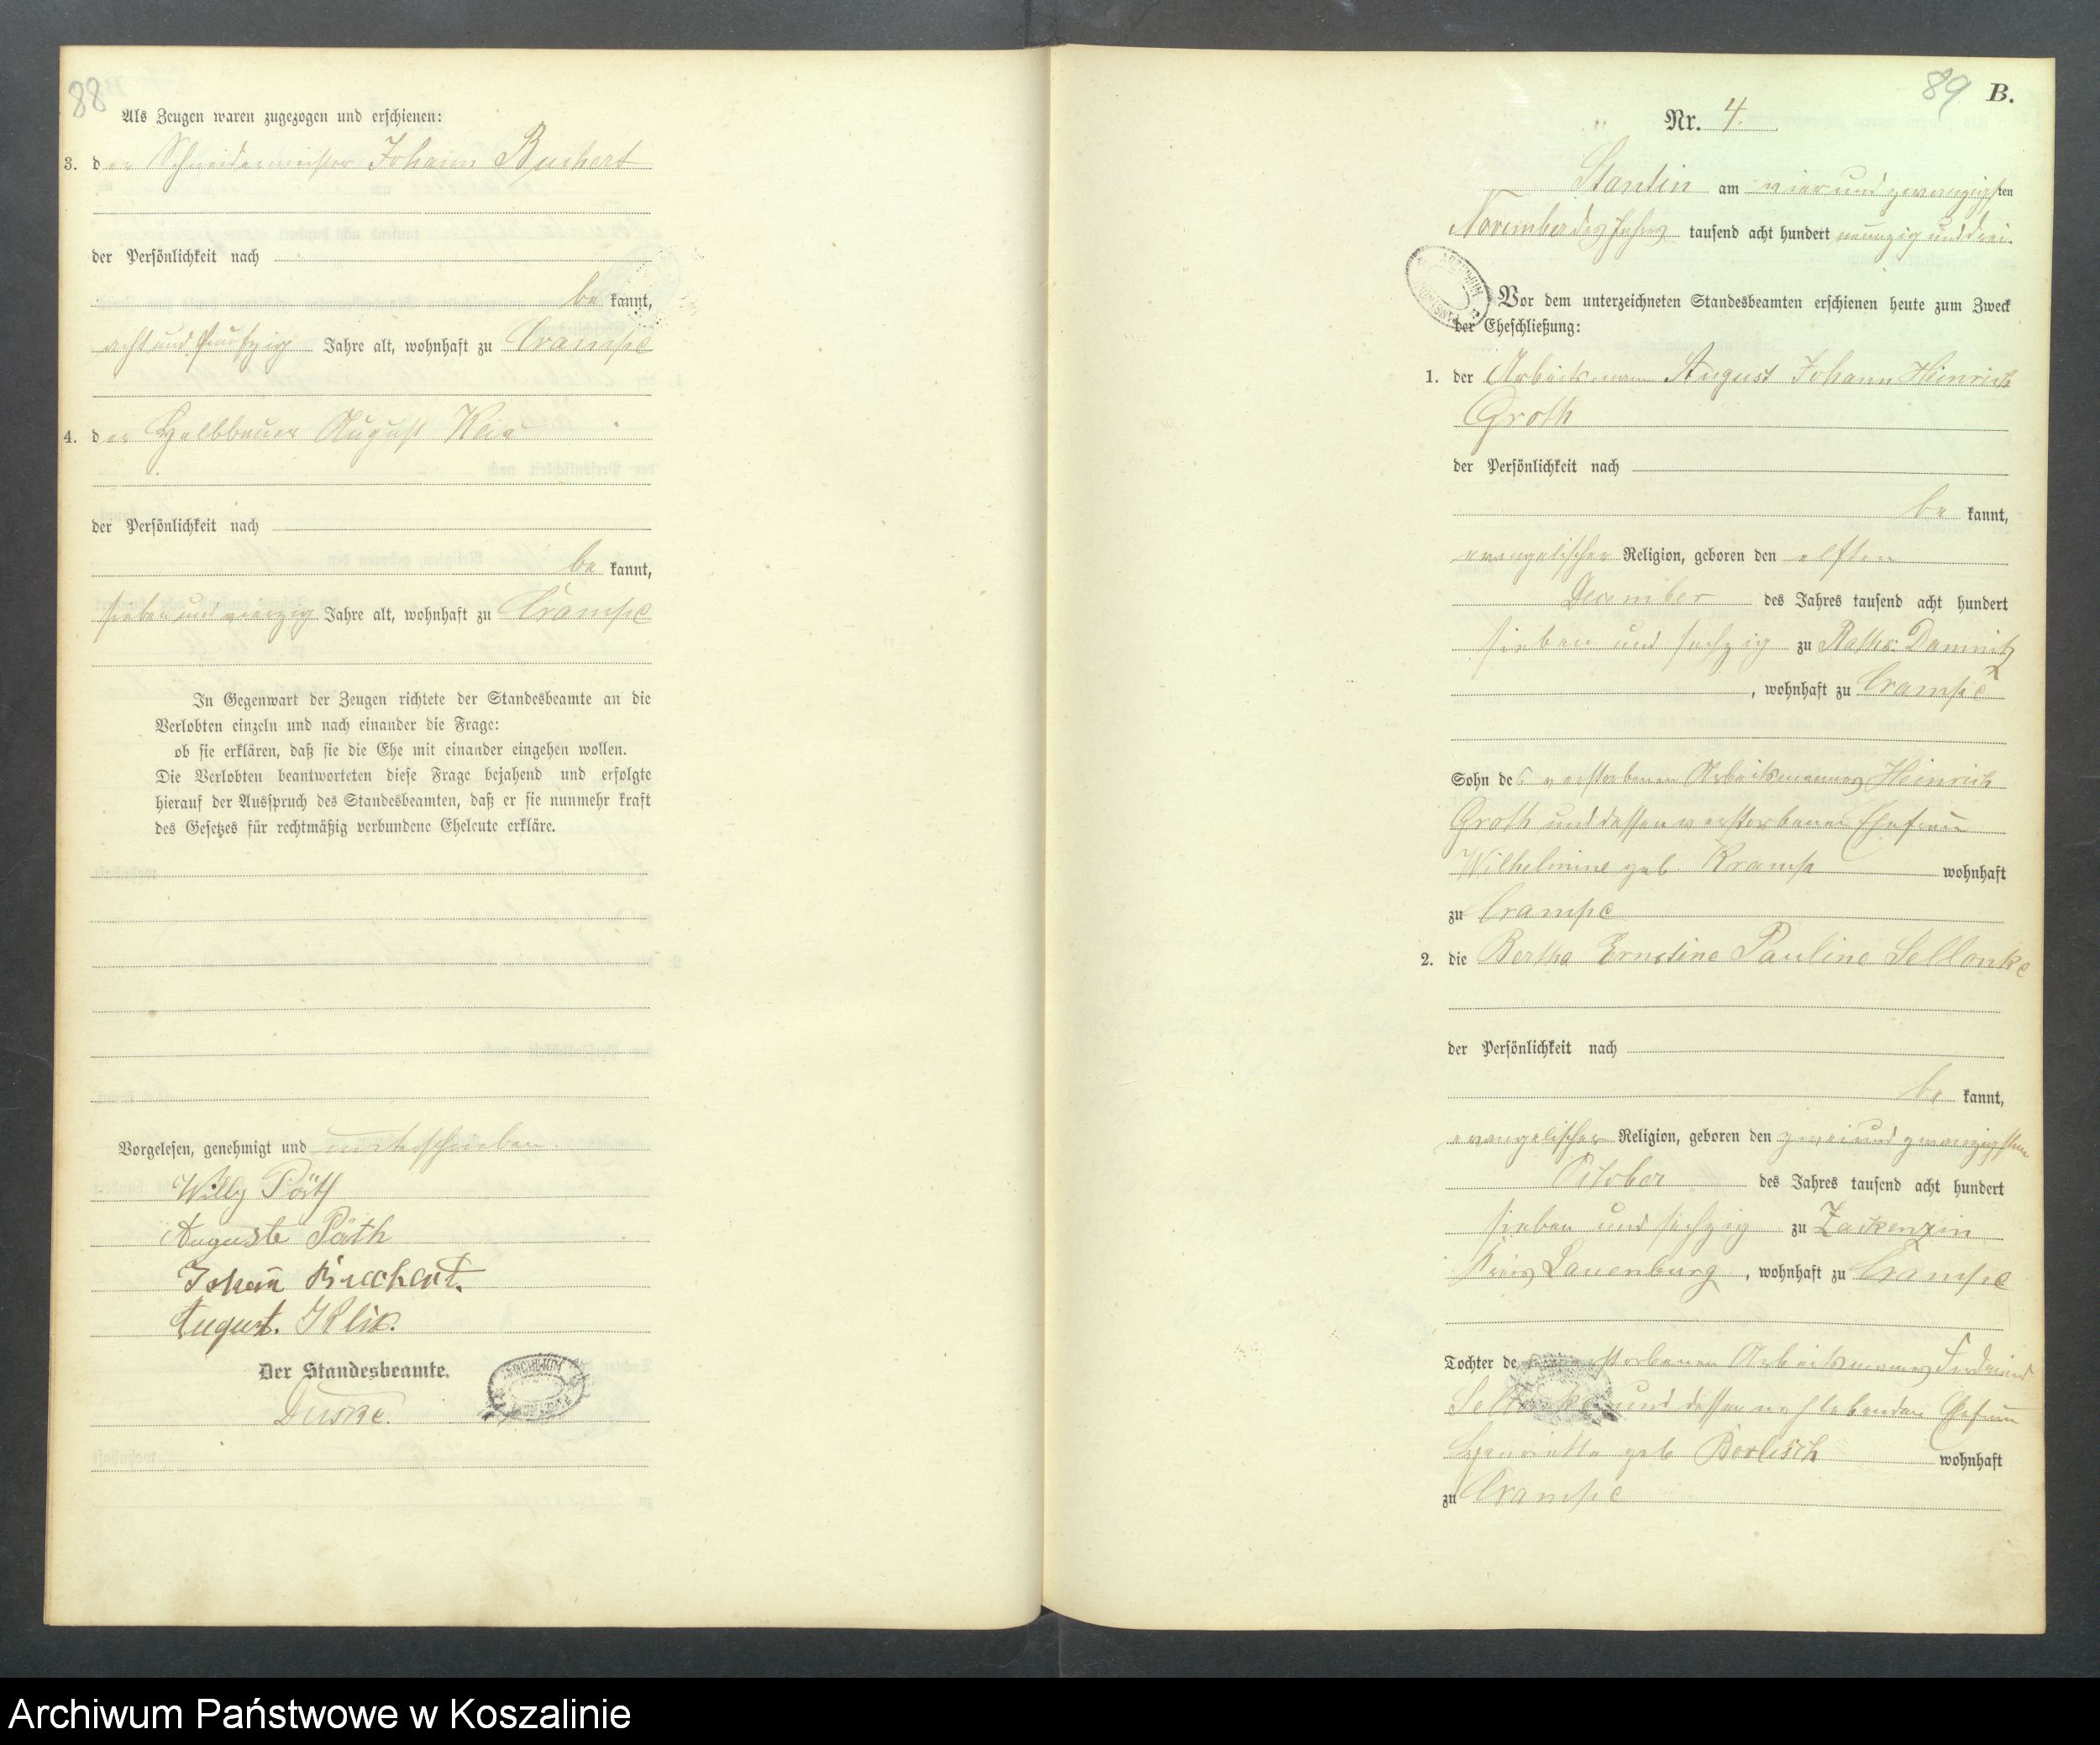 88
Als Zeugen waren zugezogen und erschienen:
3. der Schneidermeister Johann Buchert
der Persönlichkeit nach
be kannt,
acht und fünfzig Jahre alt, wohnhaft zu Crampe
4. der Halbbauer August
der Persönlichkeit nach
be kannt,
sieben und vierzig Jahre alt, wohnhaft zu Crampe
In Gegenwart der Zeugen richtete der Standesbeamte an die
Verlobten einzeln und nach einander die Frage:
ob sie erklären, daß sie die Ehe mit einander eingehen wollen.
Die Verlobten beantworteten diese Frage bejahend und erfolgte
hierauf der Ausspruch des Standesbeamten, daß er sie nunmehr kraft
des Gesetzes für rechtmäßig verbundene Eheleute erkläre.
Vorgelesen, genehmigt und unterschrieben.
Willy Päth
Auguste Päth
Johann Buchert.
August
Der Standesbeamte.
89 B.
Nr. 4.
Stantin am vier und zwanzigsten
November des Jahres tausend acht hundert neunzig und drei.
Vor dem unterzeichneten Standesbeamten erschienen heute zum Zweck
der Eheschließung:
1. der Arbeitsmann August Johann Heinrich
Groth
der Persönlichkeit nach
be kannt,
evangelischer Religion, geboren den elften
December des Jahres tausend acht hundert
sieben und sechzig zu Raths-Damnitz
, wohnhaft zu Crampe
Sohn des verstorbenen Arbeitsmannes Heinrich
Groth und dessen verstorbenen Ehefrau
Wilhelmine geb. Kramp wohnhaft
zu Crampe
2. die Bertha Ernstine Pauline Sellonke
der Persönlichkeit nach
be kannt,
evangelischer Religion, geboren den zwei und zwanzigsten
October des Jahres tausend acht hundert
sieben und sechzig zu Zackenzin
Kreis Lauenburg, wohnhaft zu Crampe
Tochter des verstorbenen Arbeitsmannes Ferdinand
Sellonke und dessen nachlebenden Ehefrau
Henriette geb. wohnhaft
zu Crampe
Archiwum Państwowe w Koszalinie